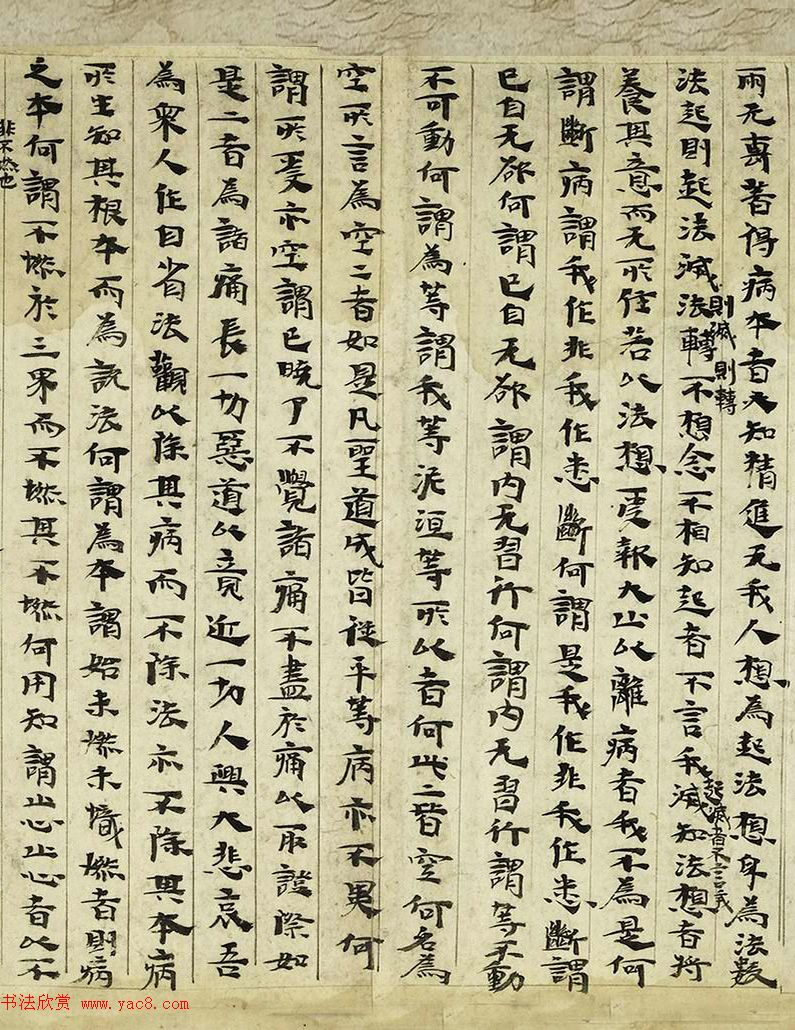 兩无專著得病本者必知精進无我人想為起法想身為法數
法起則起法滅法轉不想念不相知起者不言我滅知法想者將
則滅 則轉
起滅者不言我
養其意而无所住若以法想受報大止以離病者我不為是何
謂斷病謂我作非我作悉斷何謂是我作非我作悉斷謂
已自无欲何謂已自无欲謂内无習行何謂内无習行謂等不動
不可動何謂為等謂我等泥洹等所以者何此二皆空何名為
空所言為空二者如是凡聖道成皆從平等病亦不異何
謂所受亦空謂已曉了不覺諸痛不盡於痛以取證際如
是二者為諸痛長一切惡道以竟近一切人興大悲哀吾
為衆人作自省法觀以除其病而不除法亦不除其本病
所生知其根本而為說法何謂為本謂始未燃未熾燃者則病
之本何謂不燃於三界而不燃其不燃何用知謂止心止心者以不
非不燃也
书法欣赏 www.yac8.com